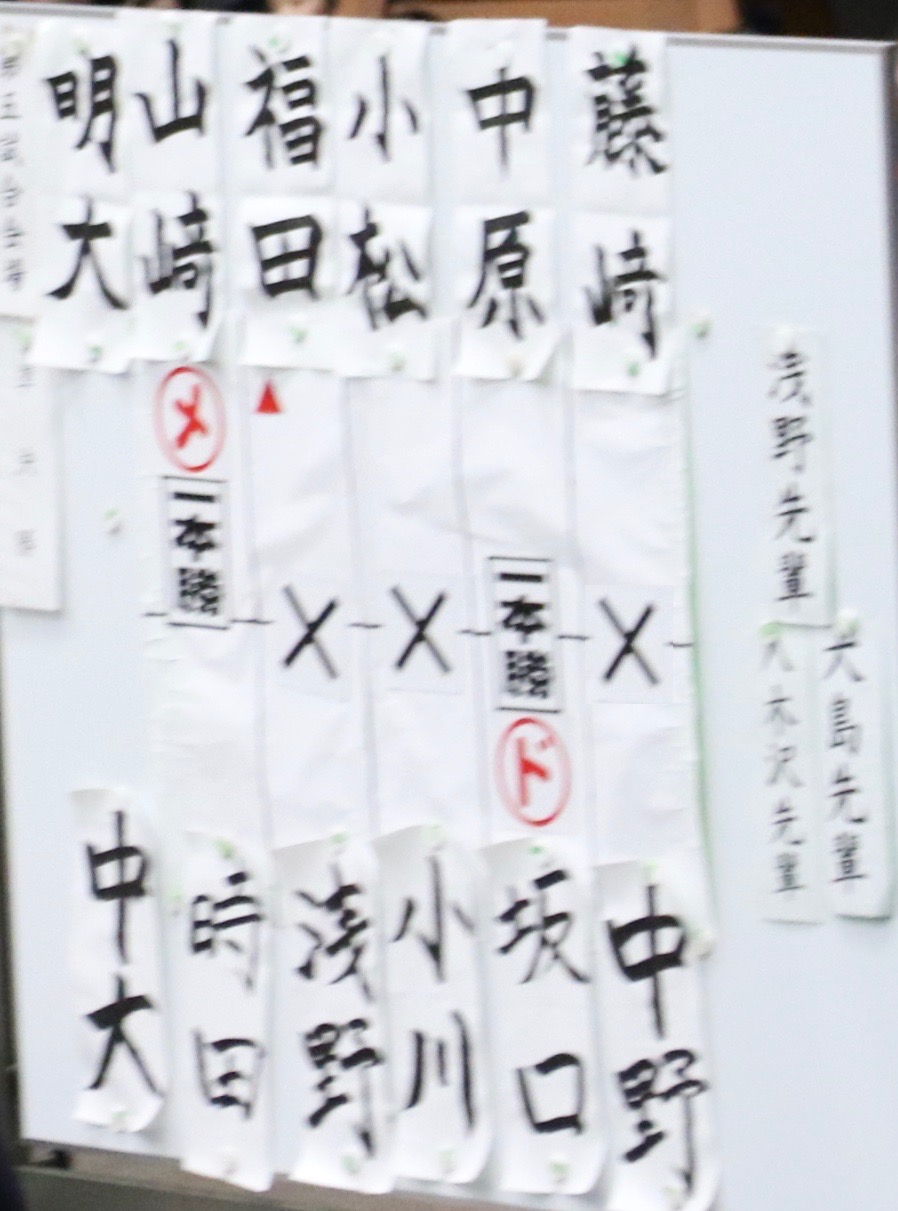 明大
山崎
福田
小松
中原
藤崎
メ
一本勝
▲
╳
╳
一本勝
ド
╳
中大
時田
浅野
小川
坂口
中野
浅野先輩
大島先輩
八木沢先輩